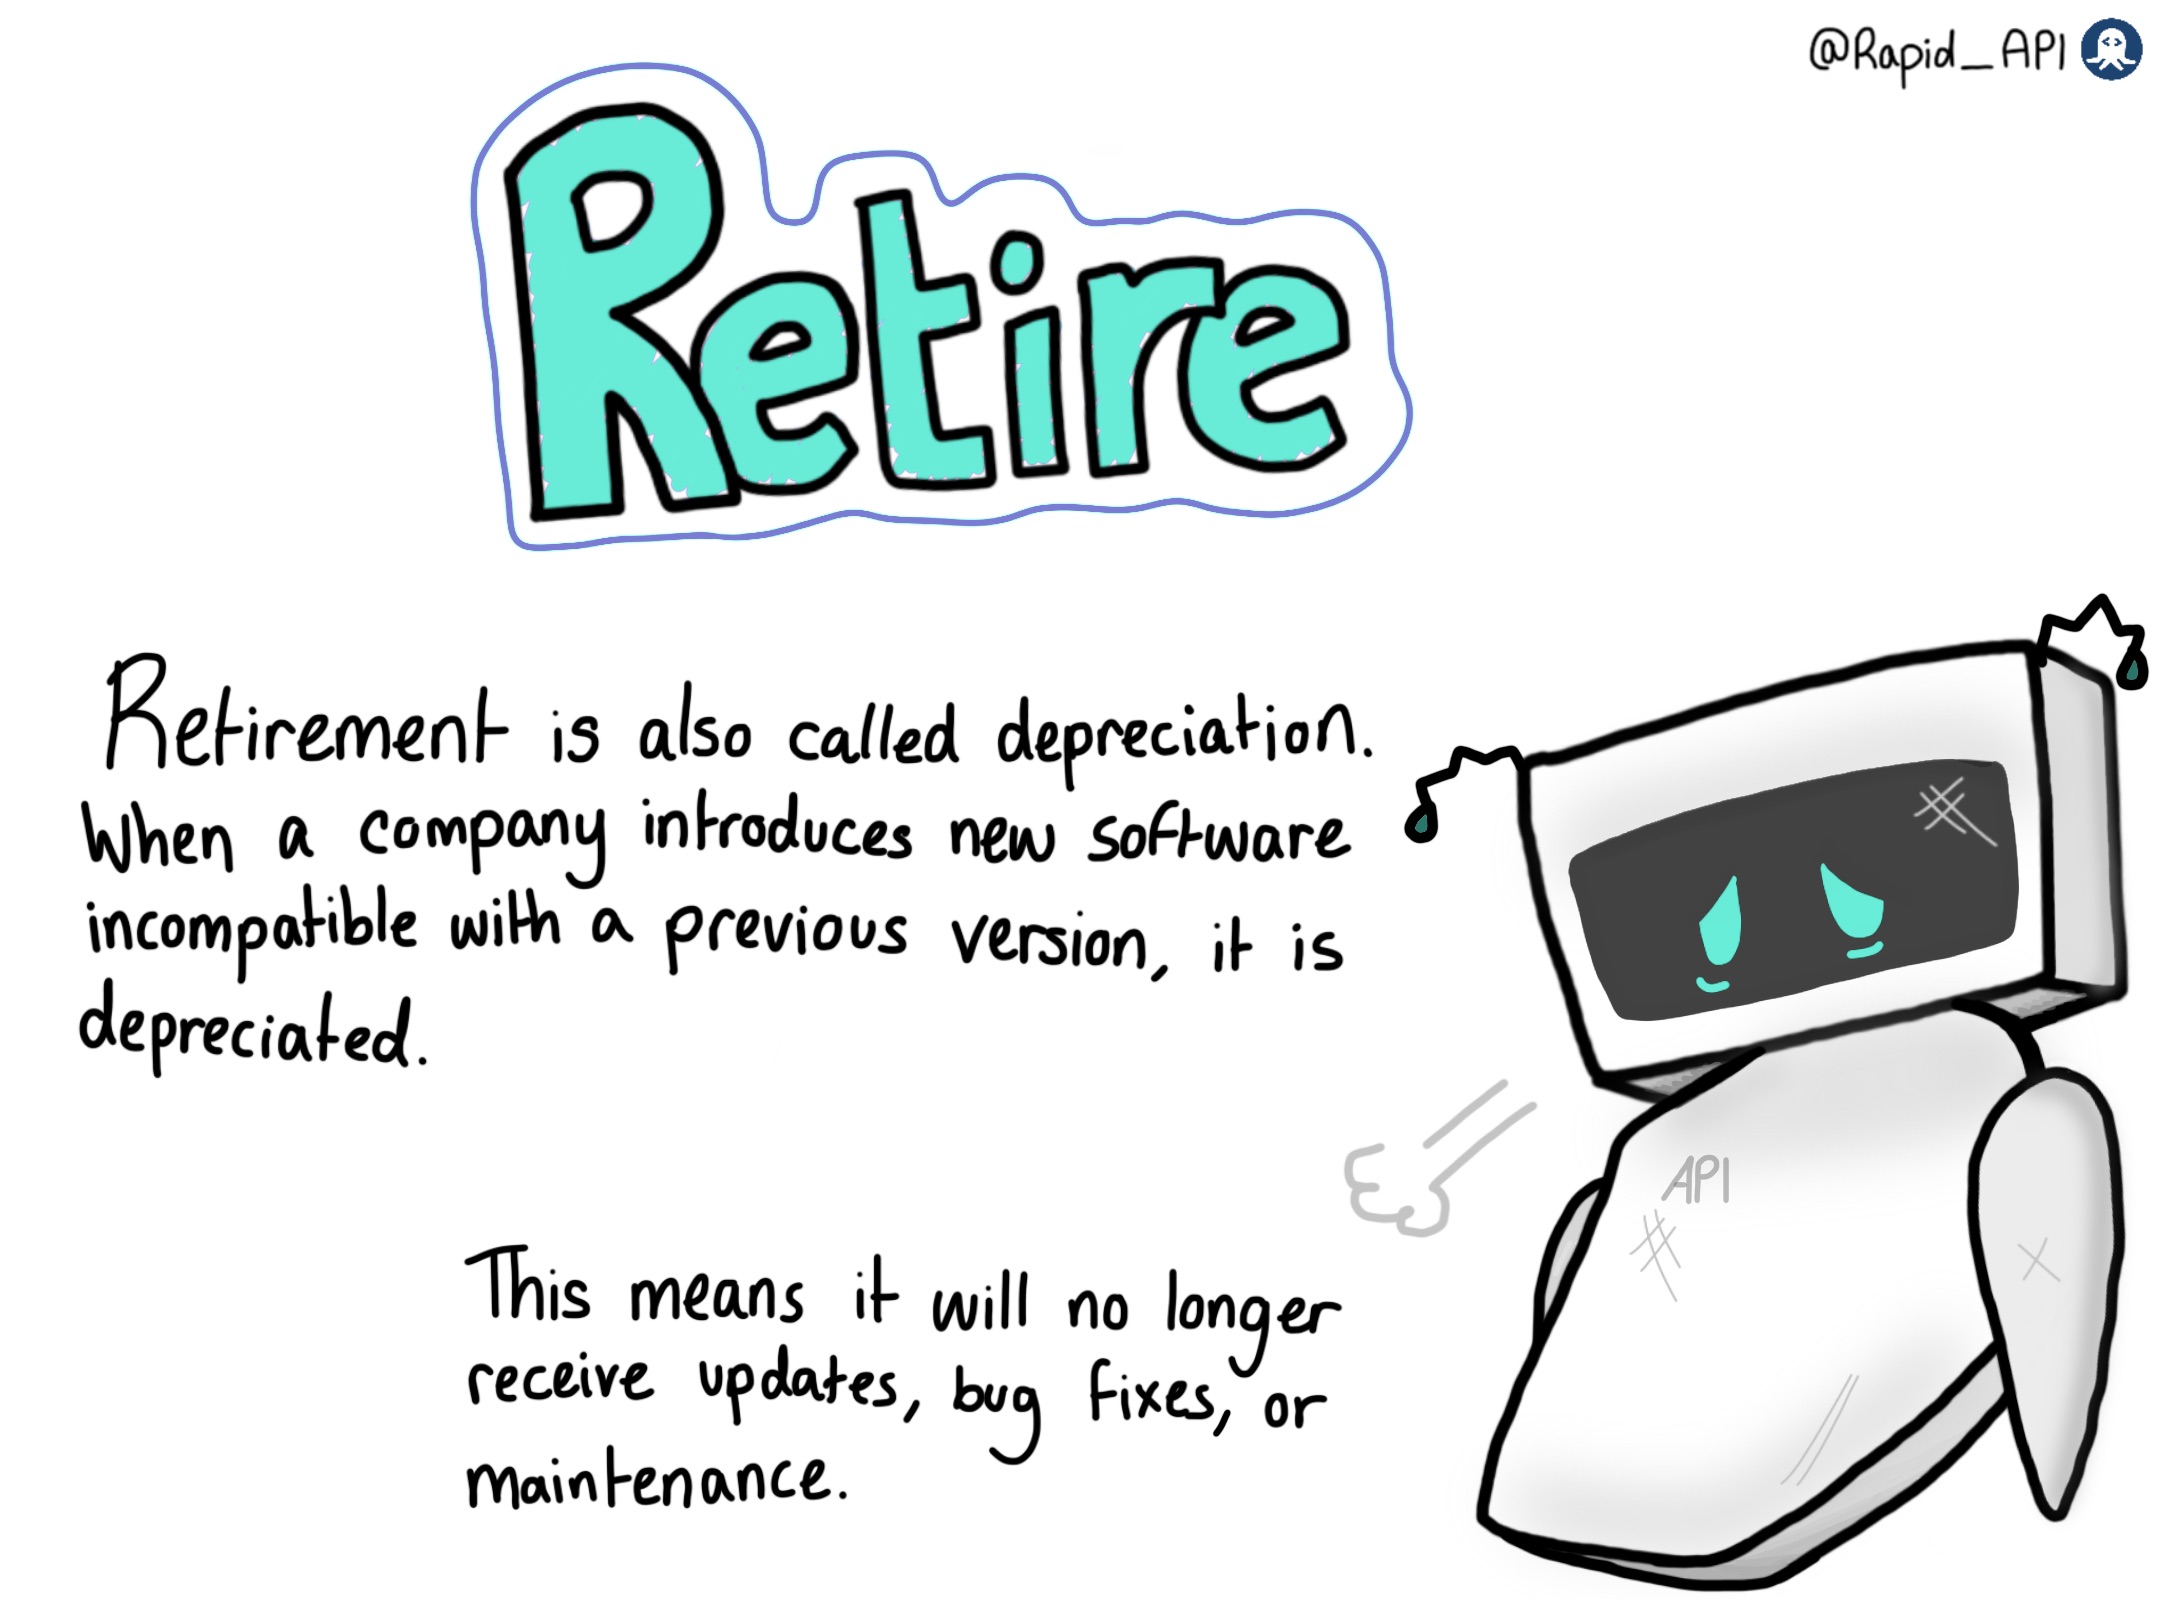 @Rapid_API
Retire
Retirement is also called depreciation.
When a company introduces new software
incompatible with a previous version, it is
depreciated.
This means it will no longer
receive updates, bug fixes, or
maintenance.
API